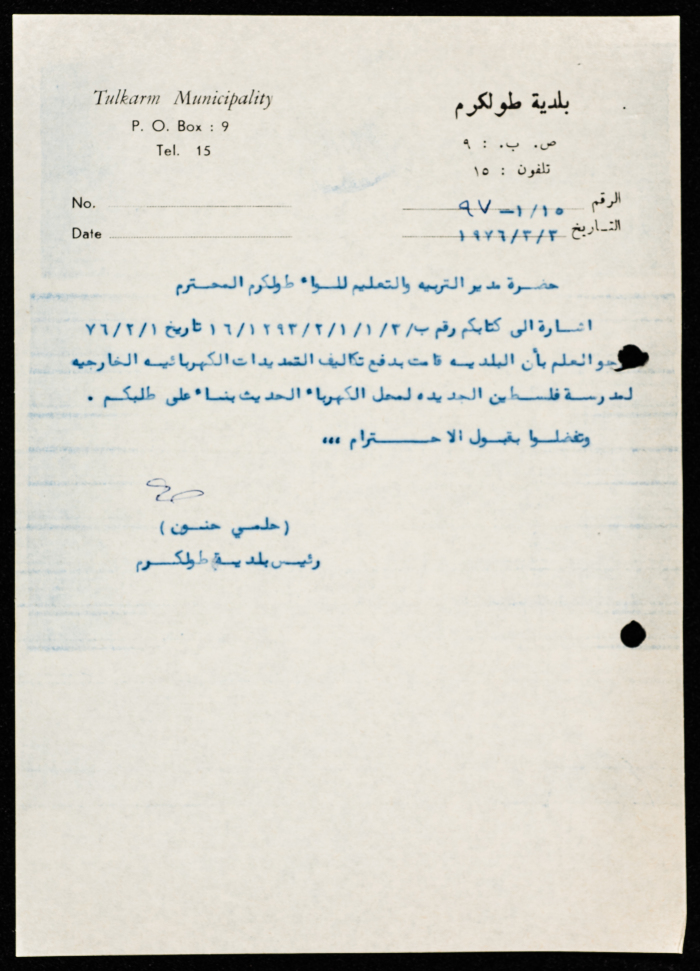 Tulkarm Municipality
P. O. Box : 9
Tel. 15
No.
Date
بلدية طولكرم
ص. ب. : ٩
تلفون : ١٥
الرقم ١/١٥ — ٩٧
التاريخ ١٩٧٦/٣/٣
حضرة مدير التربيه والتعليم للواء طولكرم المحترم
اشارة الى كتابكم رقم ب/٣/١/١/٢/١٢٩٣/١٦ تاريخ ٧٦/٢/١
رجو العلم بأن البلديه قامت بدفع تكاليف التمديدات الكهربائيه الخارجيه
لمدرسة فلسطين الجديده لمحل الكهرباء الحديث بناء على طلبكم .
وتفضلوا بقبول الاحترام ،،،
(حلمي حنون)
رئيس بلدية طولكرم